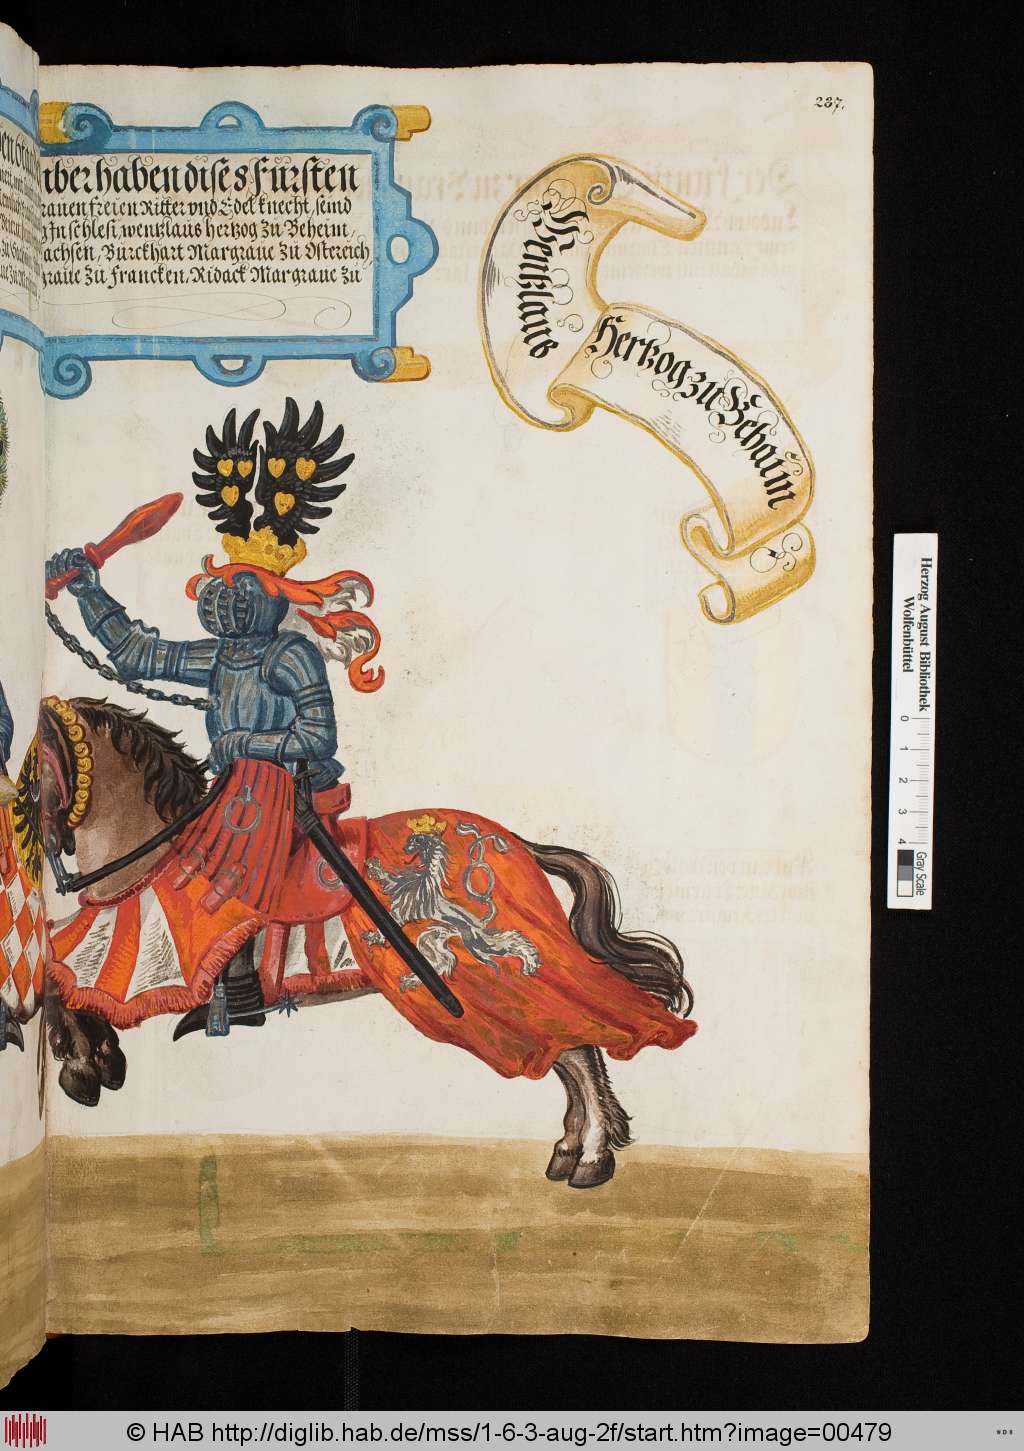 237.
über haben dises Fürsten
rauen freien Ritter vnd Edel knecht, seind
g In schlesi, wentzlaus hertzog Zu Beheim,
achsen, Burckhart Margraue Zu Ostereich,
graue Zu francken, Ridack Margraue Zu
Wentzlaus
Hertzog zu Behaim
Herzog August Bibliothek
Wolfenbüttel
0 1 2 3 4
Gray Scale
© HAB http://diglib.hab.de/mss/1-6-3-aug-2f/start.htm?image=00479